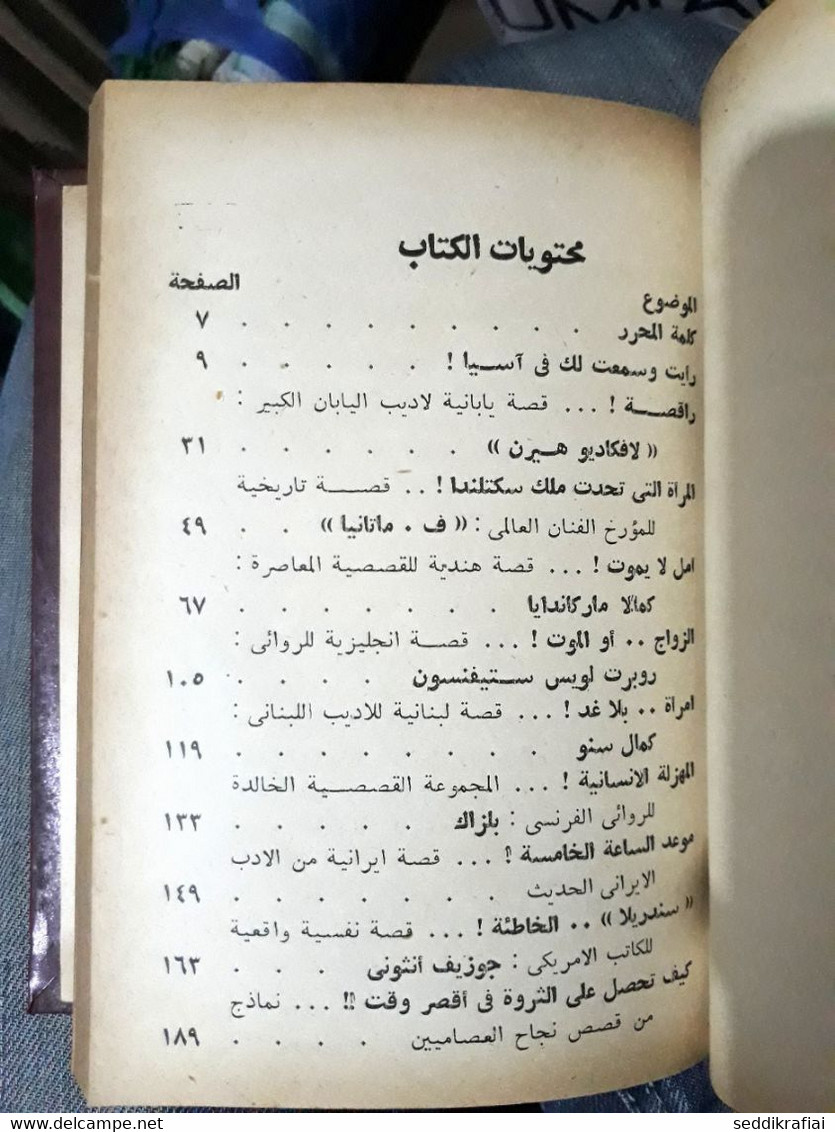 محتويات الكتاب
الموضوع الصفحة
كلمة المحرر . . . . . . . . . ٧
رايت وسمعت لك فى آسيا ! . . . . . ٩
راقصة ! ... قصة يابانية لاديب اليابان الكبير :
« لافكاديو هيرن » . . . . . . ٣١
المرأة التى تحدت ملك سكتلندا ! .. قصة تاريخية
للمؤرخ الفنان العالمى : « ف . ماتانيا » . . ٤٩
امل لا يموت ! ... قصة هندية للقصصية المعاصرة :
كمالا ماركاندايا . . . . . . . ٦٧
الزواج .. أو الموت ! ... قصة انجليزية للروائى :
روبرت لويس ستيفنسون . . . . ١٠٥
امرأة .. بلا غد ! ... قصة لبنانية للاديب اللبنانى :
كمال سنو . . . . . . . . ١١٩
المهزلة الانسانية ! ... المجموعة القصصية الخالدة
للروائى الفرنسى : بلزاك . . . . . ١٣٣
موعد الساعة الخامسة ! ... قصة ايرانية من الادب
الايرانى الحديث . . . . . . . ١٤٩
« سندريلا » .. الخاطئة ! ... قصة نفسية واقعية
للكاتب الامريكى : جوزيف أنثونى . . . ١٦٣
كيف تحصل على الثروة فى أقصر وقت !! ... نماذج
من قصص نجاح العصاميين . . . . ١٨٩
www.delcampe.net
seddikrafiai